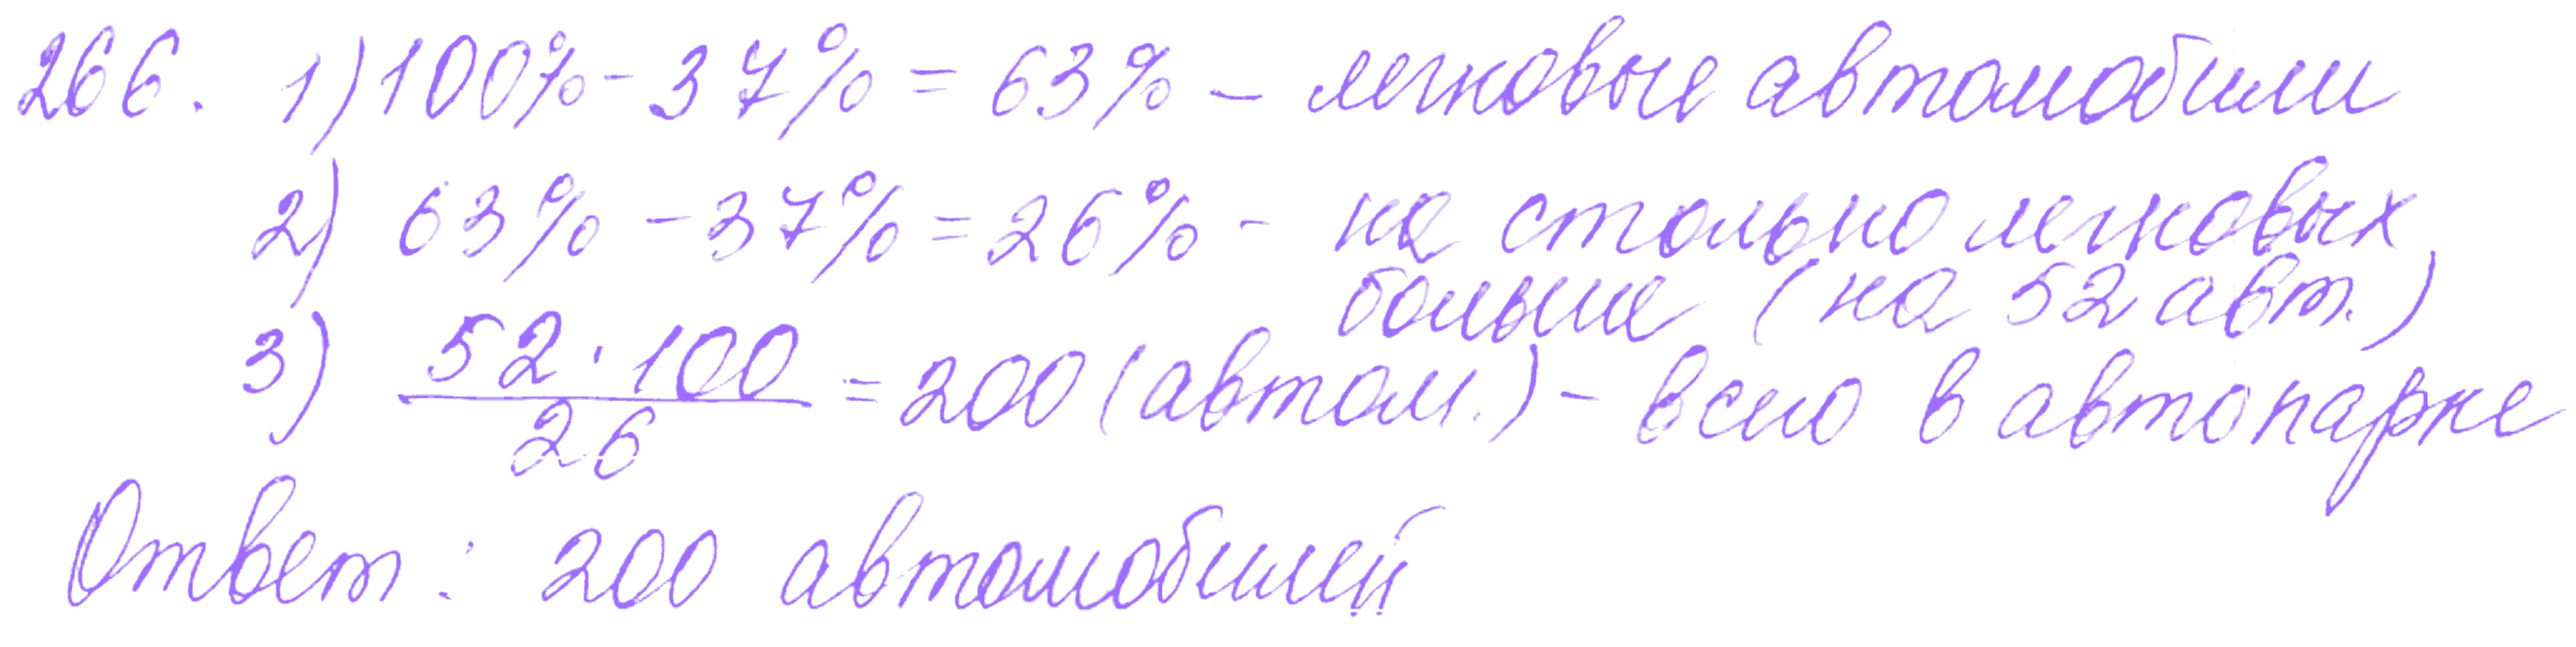 266. 1) 100% - 37% = 63% - легковые автомобили
2) 63% - 37% = 26% - на столько легковых
больше (на 52 авт.)
3) 52 · 100 / 26 = 200 (автом.) - всего в автопарке
Ответ: 200 автомобилей